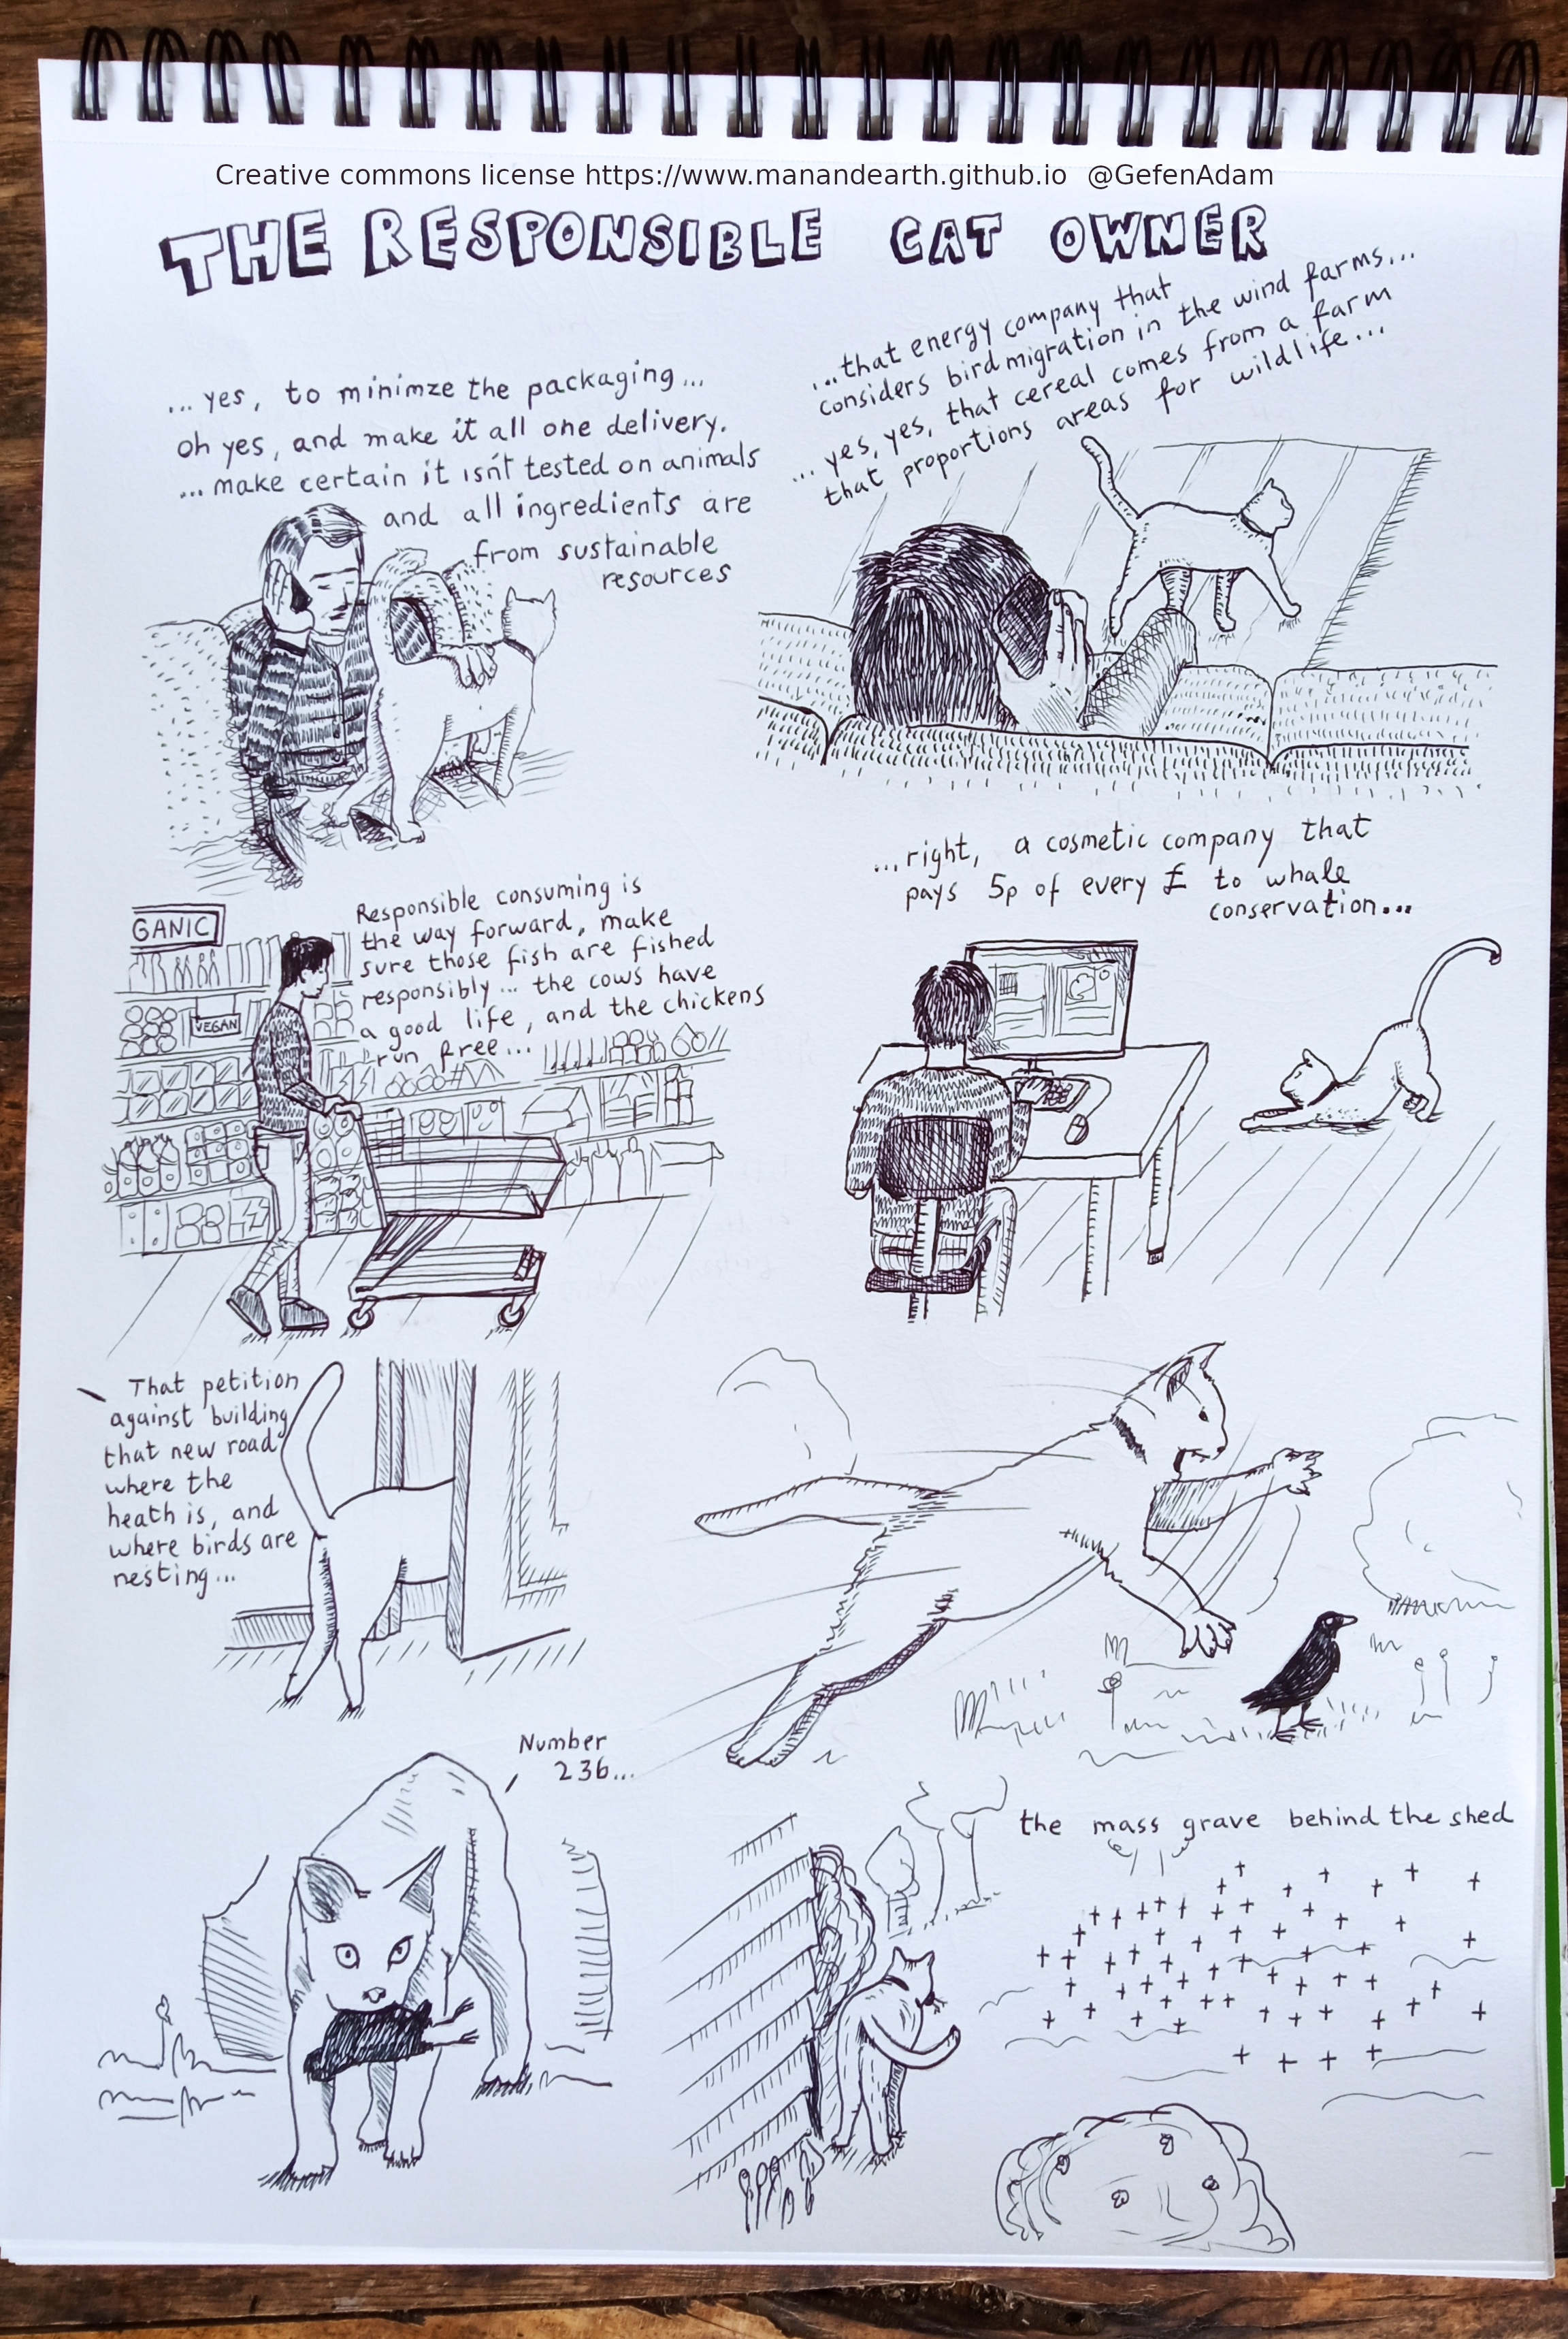 Creative commons license https://www.manandearth.github.io @GefenAdam
THE RESPONSIBLE CAT OWNER
... yes, to minimze the packaging...
oh yes, and make it all one delivery.
... make certain it isn't tested on animals
and all ingredients are
from sustainable
resources
...that energy company that
considers bird migration in the wind farms...
... yes, yes, that cereal comes from a farm
that proportions areas for wildlife...
GANIC
VEGAN
Responsible consuming is
the way forward, make
sure those fish are fished
responsibly... the cows have
a good life, and the chickens
run free...
...right, a cosmetic company that
pays 5p of every £ to whale
conservation...
That petition
against building
that new road
where the
heath is, and
where birds are
nesting...
Number
236...
the mass grave behind the shed